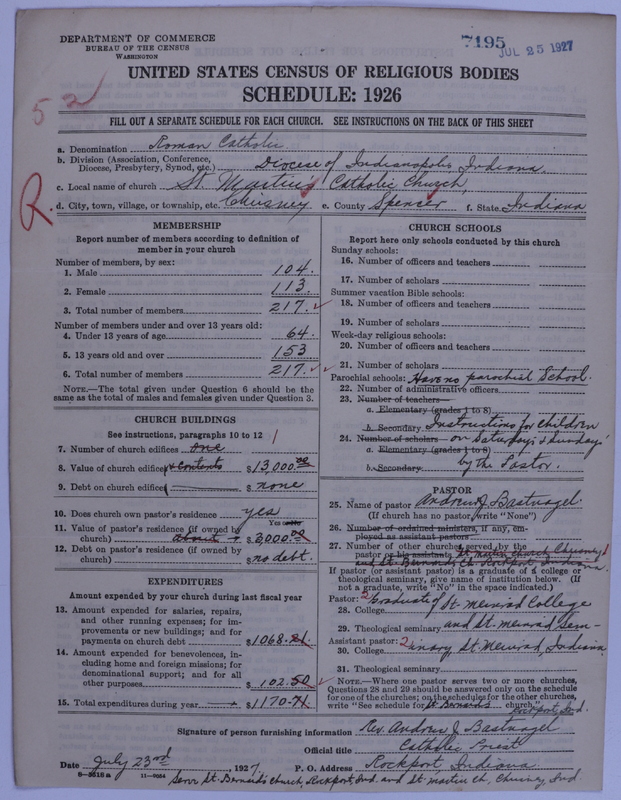 DEPARTMENT OF COMMERCE
BUREAU OF THE CENSUS
WASHINGTON
7195
JUL 25 1927
UNITED STATES CENSUS OF RELIGIOUS BODIES
SCHEDULE: 1926
52
FILL OUT A SEPARATE SCHEDULE FOR EACH CHURCH. SEE INSTRUCTIONS ON THE BACK OF THIS SHEET
R.
a. Denomination Roman Catholic
b. Division (Association, Conference, Diocese, Presbytery, Synod, etc.) Diocese of Indianapolis Indiana
c. Local name of church St. Martins Catholic Church,
d. City, town, village, or township, etc. Chrisney e. County Spencer f. State Indiana
MEMBERSHIP
Report number of members according to definition of
member in your church
Number of members, by sex:
1. Male 104.
2. Female 113
3. Total number of members 217.
Number of members under and over 13 years old:
4. Under 13 years of age 64.
5. 13 years old and over 153
6. Total number of members 217.
NOTE.—The total given under Question 6 should be
the same as the total of males and females given under Question 3.
CHURCH BUILDINGS
See instructions, paragraphs 10 to 12
7. Number of church edifices one 1
8. Value of church edifices & contents $13,000.00
9. Debt on church edifices $ none
10. Does church own pastor's residence yes
Yes or No
11. Value of pastor's residence (if owned by
church) about $2,000.00
12. Debt on pastor's residence (if owned by
church) $ no debt.
EXPENDITURES
Amount expended by your church during last fiscal year
13. Amount expended for salaries, repairs,
and other running expenses; for im-
provements or new buildings; and for
payments on church debt $1068.21
14. Amount expended for benevolences, in-
cluding home and foreign missions; for
denominational support; and for all
other purposes 102.50
15. Total expenditures during year $1170.71
CHURCH SCHOOLS
Report here only schools conducted by this church
Sunday schools:
16. Number of officers and teachers
17. Number of scholars
Summer vacation Bible schools:
18. Number of officers and teachers
19. Number of scholars
Week-day religious schools:
20. Number of officers and teachers
21. Number of scholars
Parochial schools: Have no parochial School.
22. Number of administrative officers
23. Number of teachers—
a. Elementary (grades 1 to 8)
b. Secondary Instructions for children
24. Number of scholars— on Saturdays & Sundays
a. Elementary (grades 1 to 8)
b. Secondary by the Pastor.
PASTOR
25. Name of pastor Andrew J. Bastnagel
(If church has no pastor, write "None")
26. Number of ordained ministers, if any, em-
ployed as assistant pastors
27. Number of other churches served by the
pastor or his assistants St Martin Church Chrisney, 1
and St. Bernards Ch. Rockport Indiana.
If pastor (or assistant pastor) is a graduate of a college or
theological seminary, give name of institution below. (If
not a graduate, write "No" in the space indicated.)
Pastor: 2 Graduate of
28. College St. Meinrad College
29. Theological seminary and St. Meinrad Sem-
Assistant pastor: 2
30. College inary St. Meinrad, Indiana
31. Theological seminary
NOTE.—Where one pastor serves two or more churches,
Questions 28 and 29 should be answered only on the schedule
for one of the churches; on the schedules for the other churches,
write "See schedule for St Bernards church" Rockport, Ind.
Signature of person furnishing information Rev. Andrew J. Bastnagel
Official title Catholic Priest
Date July 23rd, 1927. P. O. Address Rockport, Indiana
8-5618a 11-9054
Serv St. Bernards Church, Rockport Ind. and St. Martin Ch. Chrisney, Ind